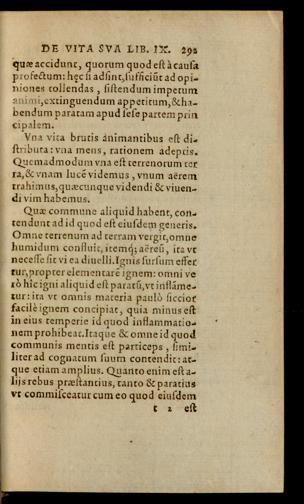 DE VITA SVA LIB. IX. 292
quæ accidunt, quorum quod est à causa
profectum: hęc si adsint, sufficiūt ad opi-
niones tollendas, sistendum impetum
animi, extinguendum appetitum, & ha-
bendum paratam apud sese partem prin
cipalem.
Vna vita brutis animantibus est di-
stributa: vna mens, rationem adeptis.
Quemadmodum vna est terrenorum ter
ra, & vnam lucē videmus, vnum aërem
trahimus, quæcunque videndi & viuen-
di vim habemus.
Quæ commune aliquid habent, con-
tendunt ad id quod est eiusdem generis.
Omne terrenum ad terram vergit, omne
humidum confluit, itemq́; aëreū, ita vt
necesse sit vi ea diuelli. Ignis sursum effer
tur, propter elementarē ignem: omni ve
rò hîc igni aliquid est paratū, vt inflāme-
tur: ita vt omnis materia paulò siccior
facilè ignem concipiat, quia minus est
in eius temperie id quod inflammatio-
nem prohibeat. Itaque & omne id quod
communis mentis est particeps, simi-
liter ad cognatum suum contendit: at-
que etiam amplius. Quanto enim est a-
lijs rebus præstantius, tanto & paratius
vt commisceatur cum eo quod eiusdem
t 2 est